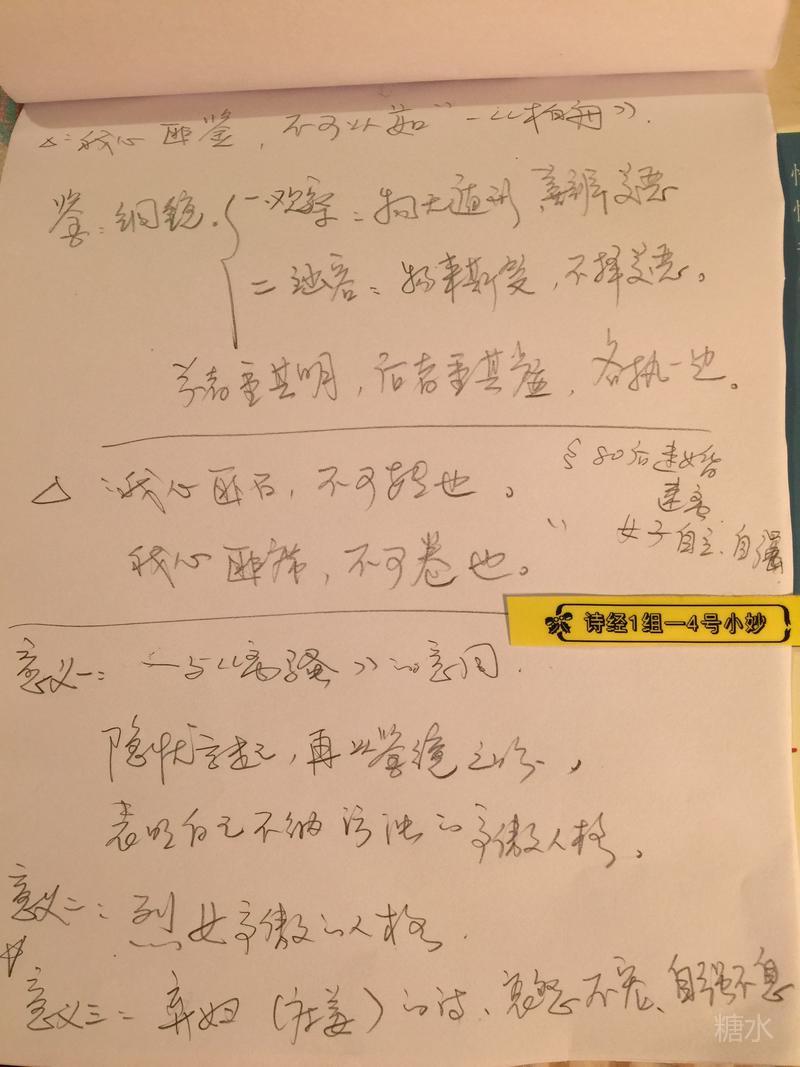 △:"我心匪鉴,不可以茹"-《柏舟》.
鉴:铜镜.
一观察:物无遁形 善辨美恶
二涵容:物来斯受,不择美恶。
者重其明,后者重其虚,各执一边。
△ "我心匪石,不可转也。
我心匪席,不可卷也。"
80后速婚
速离
女子自立、自强
诗经1组—4号小妙
意义一:与《离骚》的意同.
隐忧言起,再以鉴镜之,
表明自己不纳污浊的高傲人格。
意义二:烈女高傲的人格.
意义三:弃妇(庄姜)的诗、哀怨不宏、自强不息
糖水